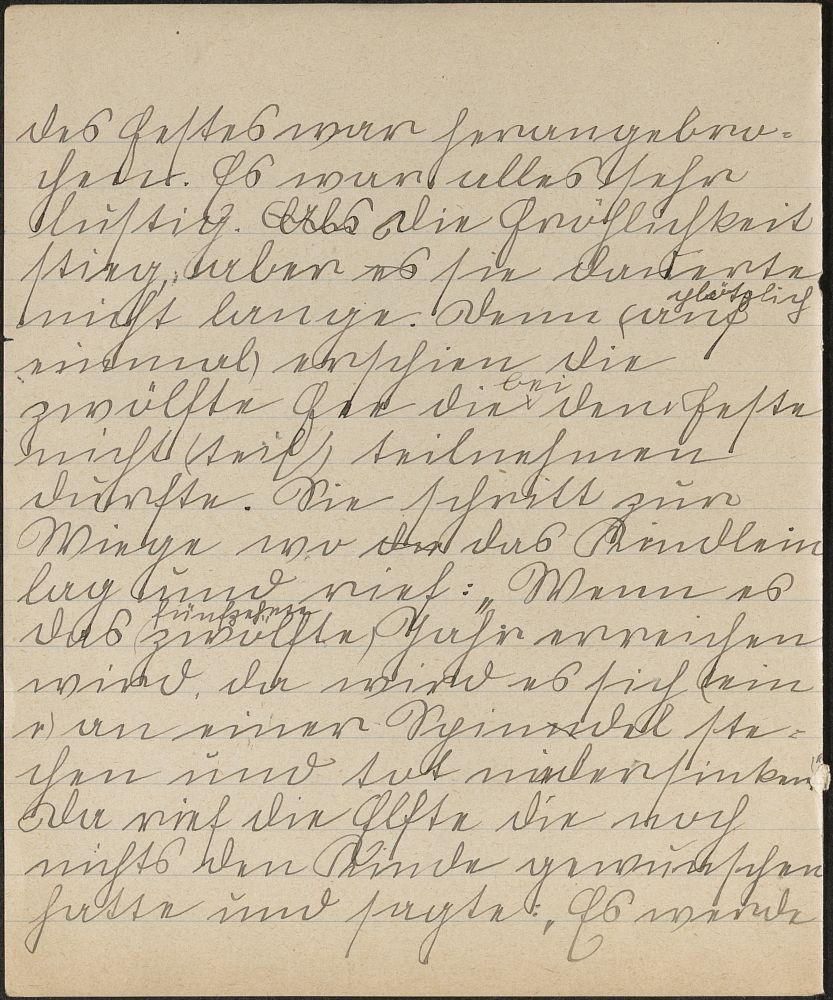 des Festes war herangebro-
chen. Es war alles sehr
lustig. (Als die Fröhlichkeit
stieg, aber es sie dauerte
nicht lange. Denn (auf plötzlich
einmal) erschien die
zwölfte Fee die bei dem Feste
nicht (teil) teilnehmen
durfte. Sie schritt zur
Wiege wo das Kindlein
lag und rief: „Wenn es
das fünfzehnte (zwölfte) Jahr erreichen
wird, da wird es sich (ein
e) an einer Spindel ste-
chen und tot niedersinken."
Da rief die Elfte die noch
nichts den Kinde gewünschen
hatte und sagte: „Es werde